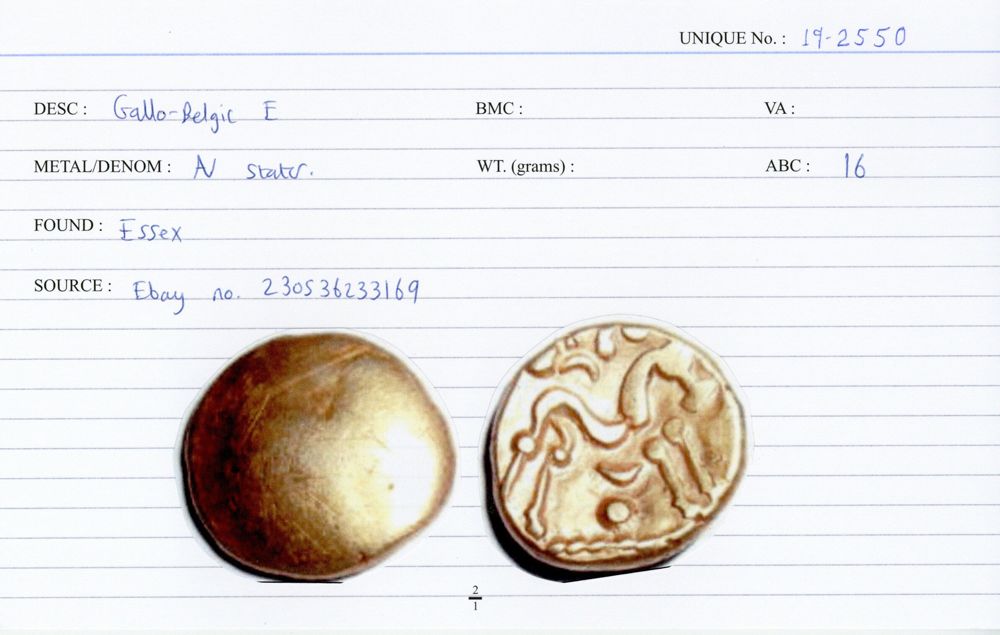 UNIQUE No. : 19-2550
DESC : Gallo-Belgic E BMC : VA :
METAL/DENOM : AV stater. WT. (grams) : ABC : 16
FOUND : Essex
SOURCE : Ebay no. 230536233169
2
1